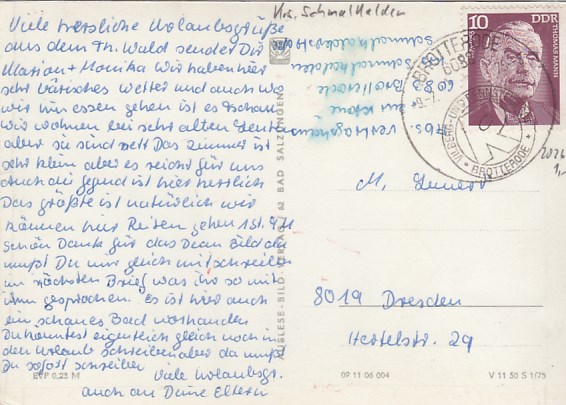 Viele herzliche Urlaubsgrüße
aus dem Th. Wald sendet Dir
Marion + Monika Wir haben hier
sehr bärisches Wetter und auch wo
wir hin essen gehen ist es schau
wir wohnen bei sehr alten Leuten
aber sie sind nett Das Zimmer ist
sehr klein aber es reicht für uns
auch die Gegend ist hier herrlich
Das größte ist natürlich wir
können hier Reiten gehen 1 St. 4 M
schön Dank für das Dean Bild du
mußt Du mir gleich mitschreiben
im nächsten Brief was ihr so mit
ihm gesprochen. Es ist hier auch
ein schaues Bad vorhanden
Du könntest eigentlich gleich noch in
den Urlaub schreiben aber da mußt
Du sofort schreiben
Viele Urlaubsgr.
auch an Deine Eltern
Krs. Schmalkalden
6083 Brotterode
10
DDR
THOMAS MANN
BROTTERODE
608
BROTTERODE
M.
8019 Dresden
Hertelstr. 29
AUSLESE-BILD-VERLAG 62 BAD SALZUNGEN
EVP 0,25 M
09 11 06 004
V 11 50 S 1/75